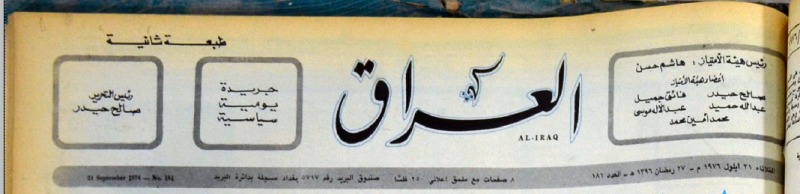 طبعة ثانية
رئيس هيئة الامتياز : هاشم حسن
أعضاء هيئة الامتياز
صالح حيدر فائق جميل
عبدالله حميد عبدالاله موسى
محمد أمين محمد
العراق
AL-IRAQ
جريدة
يومية
سياسية
رئيس التحرير
صالح حيدر
الثلاثاء ٢١ ايلول ١٩٧٦ م - ٢٧ رمضان ١٣٩٦ هـ - العدد ١٨١
٨ صفحات مع ملحق اعلاني ٢٥ فلسا صندوق البريد رقم ٥٧١٧ بغداد مسجلة بدائرة البريد
21 September 1976 — No.